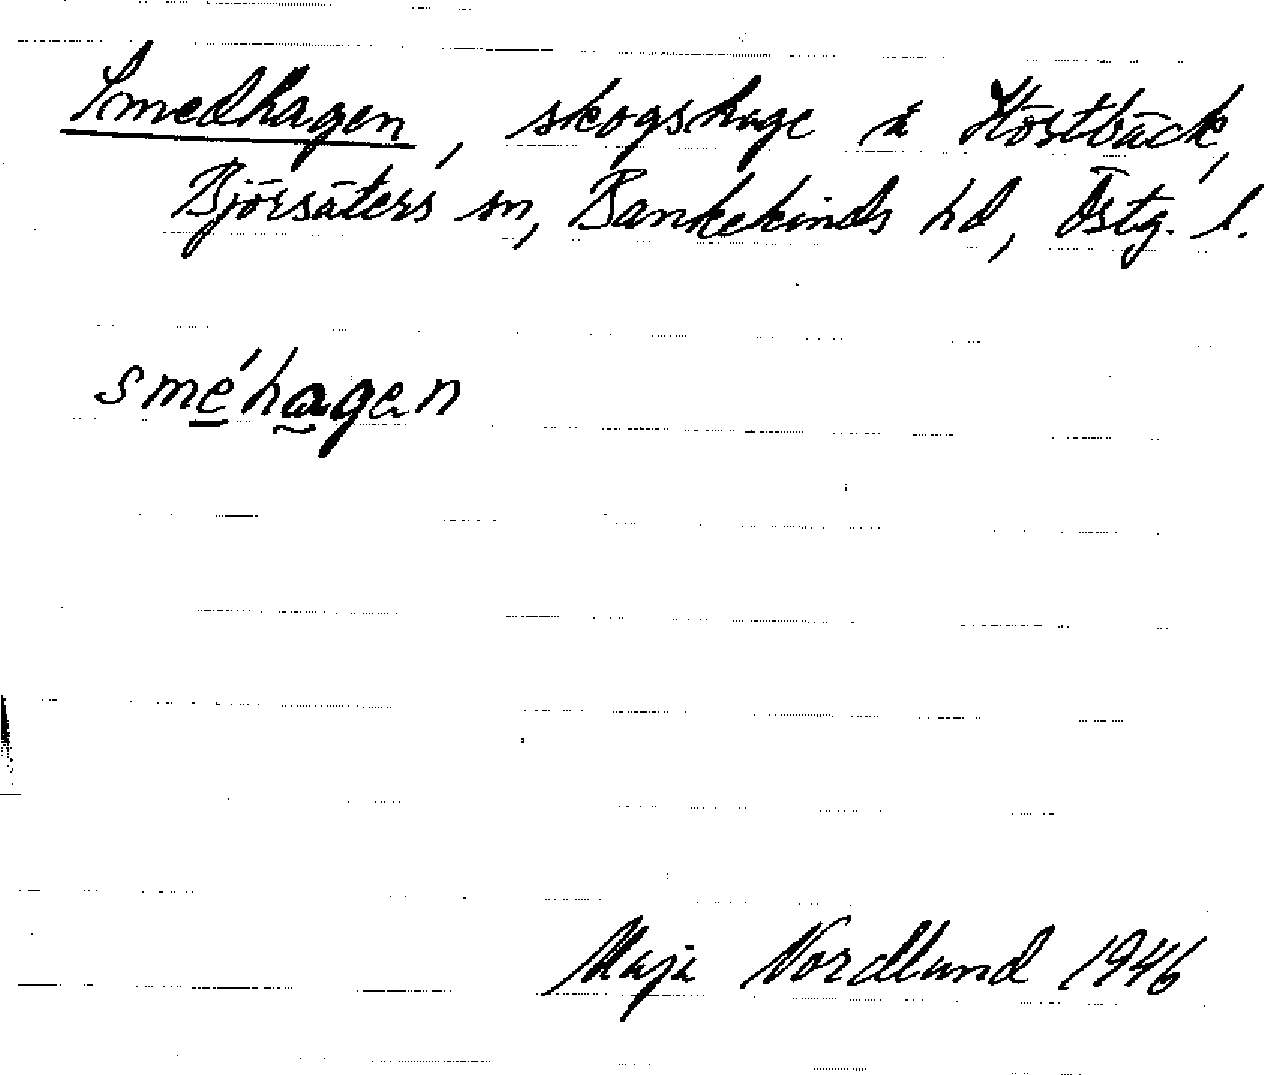 Smedhagen, skogshage å Höstbäck,
Björsäters sn, Bankekinds hd, Östg. l.
sme̲´hagen
Maja Nordlund 1946